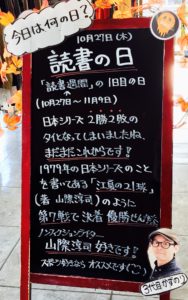 今日は何の日?
10月27日(木)
読書の日
「読書週間」の1日目の日
(10月27日〜11月9日)
日本シリーズ2勝2敗の
タイとなってしまいましたね、
まだまだこれからです!
1979年の日本シリーズのこと
を書いてある「江夏の21球」
(著 山際淳司)のように
第7戦で決着 優勝
ノンフィクションライター
山際淳司 好きです!
オススメです
3代目かすのり